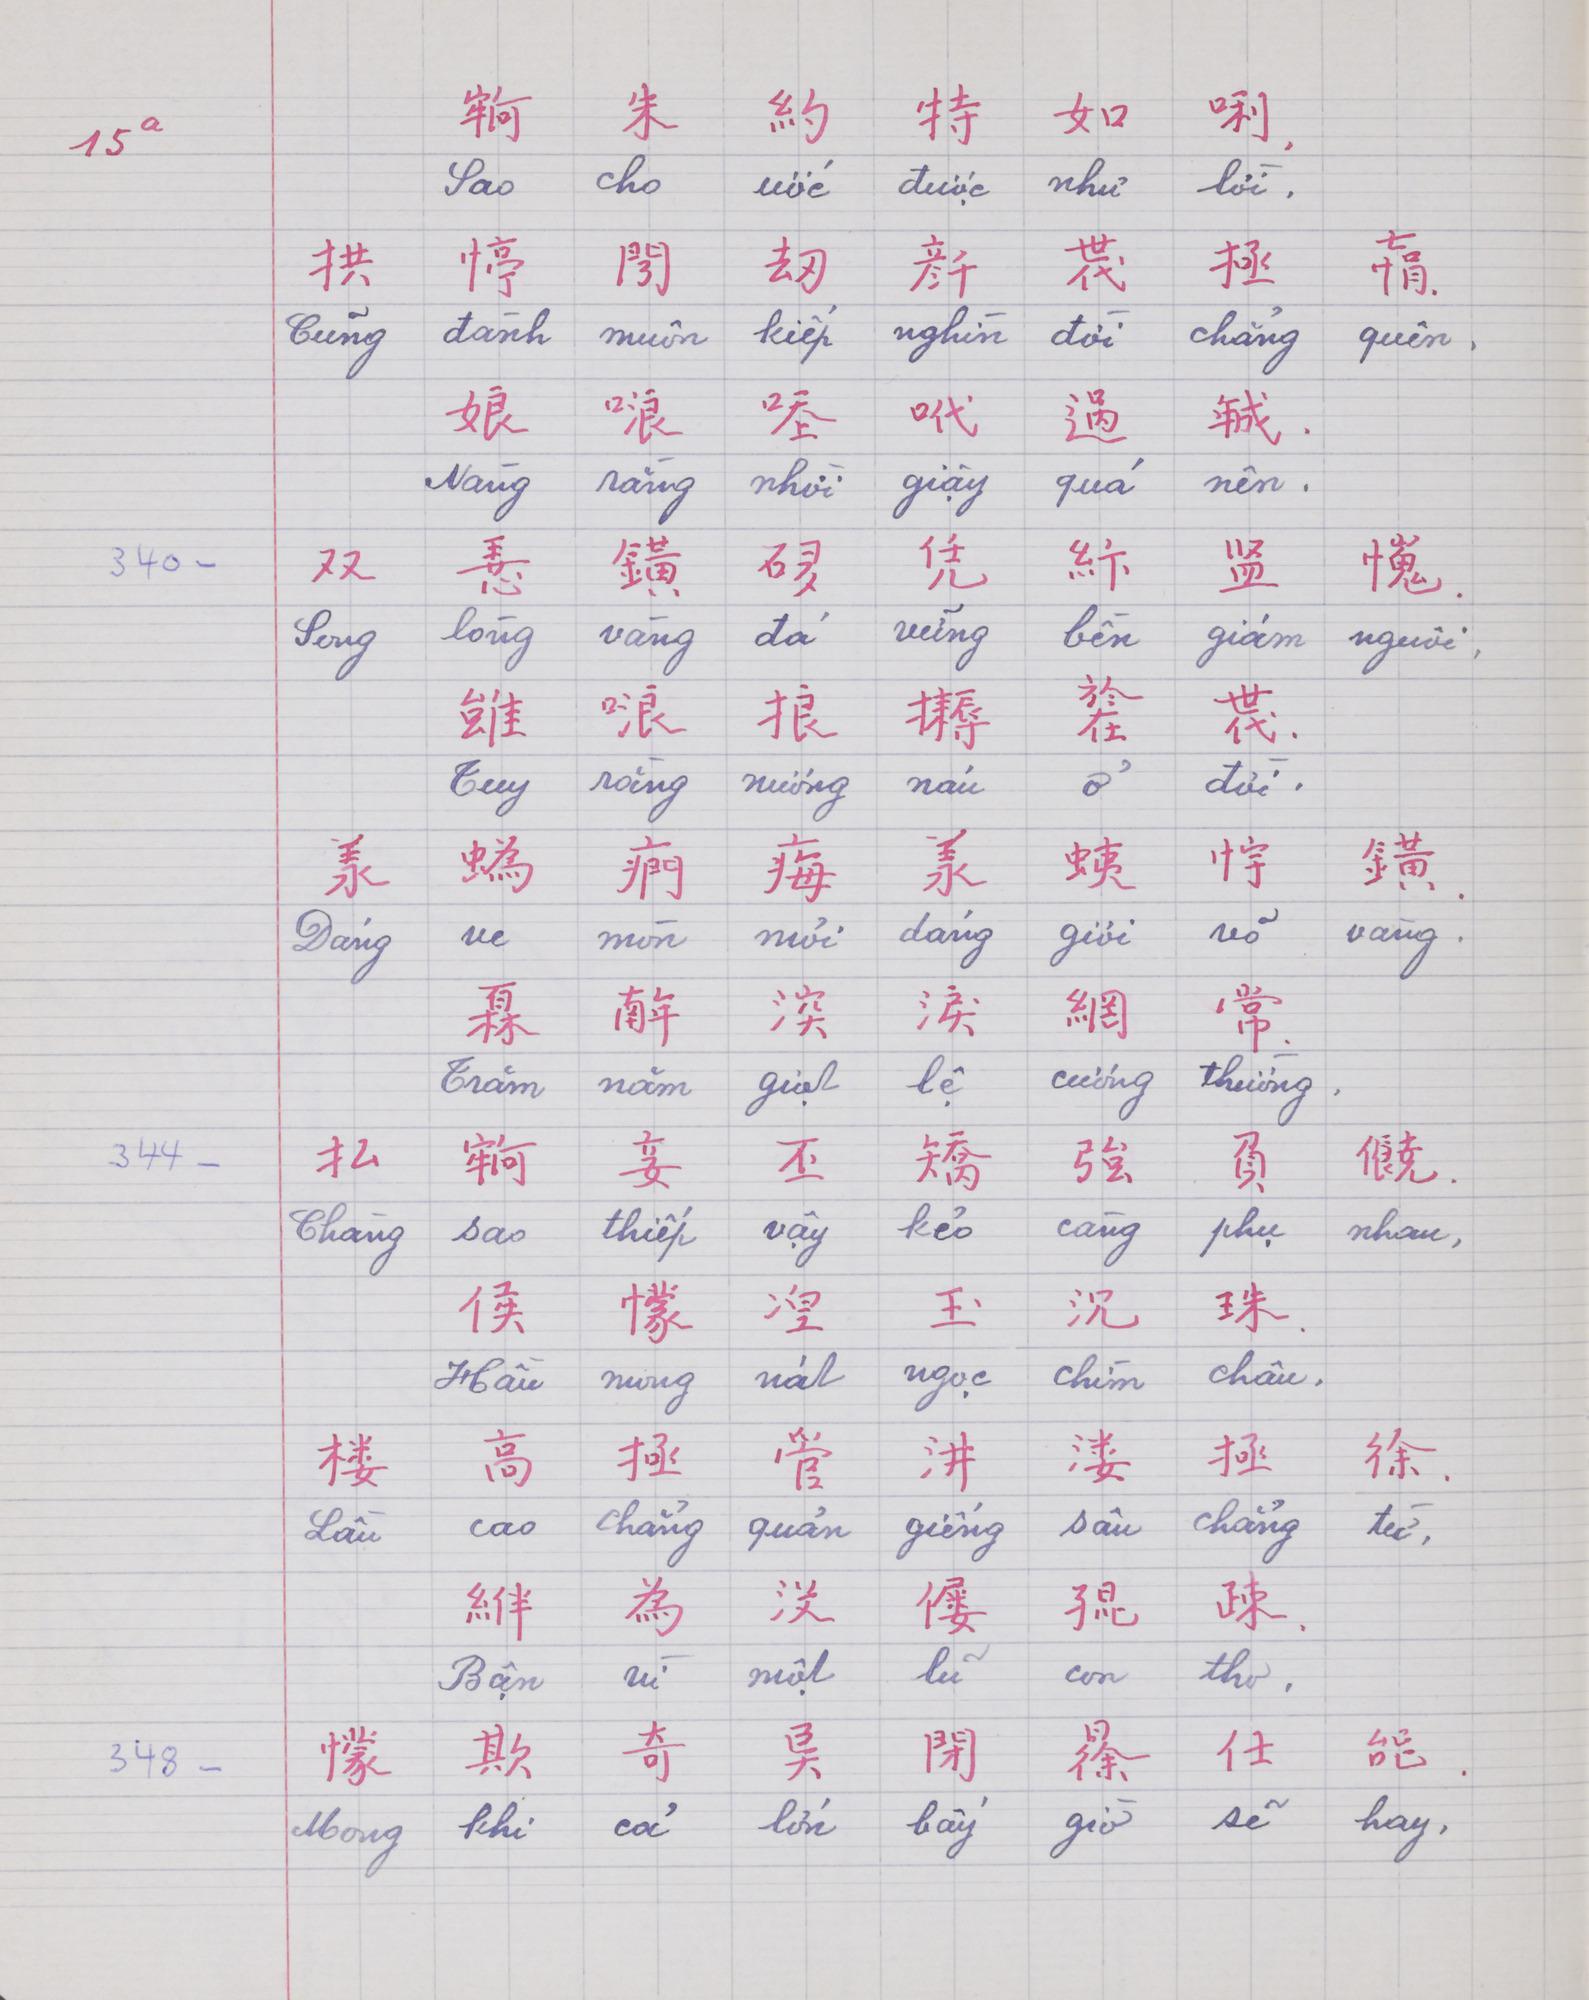 15a
𡫡 朱 約 特 如 唎.
Sao cho ước được như lời.
拱 停 閍 刼 𠦳 𠁀 拯 悁.
Cũng đành muôn kiếp nghìn đời chẳng quên,
娘 哴 𠱋 𠰺 過 𢧚.
Nàng rằng nhời giậy quá nên.
340 - 双 𢚸 鐄 𥒥 凭 𥿠 监 𢠅.
Song lòng vàng đá vững bền giám nguôi,
雖 哴 𢭗 㨅 於 𠁀.
Tuy rằng nương náu ở đời.
𢒎 𧍋 𤶐 痗 𢒎 蛦 𢗼 鐄.
Dáng ve mòn mỏi dáng giời võ vàng.
𤾓 𢆥 湥 淚 綱 常.
Trăm năm giọt lệ cương thường.
344 - 払 𡫡 妾 丕 矯 強 負 饒.
Chàng sao thiếp vậy kẻo càng phụ nhau,
侯 懞 湼 玉 沉 珠.
Hầu mong nát ngọc chìm châu.
楼 高 拯 管 汫 溇 拯 徐.
Lầu cao chẳng quản giếng sâu chẳng từ,
絆 為 没 僂 𡥵 踈.
Bận vì một lũ con thơ,
348 - 懞 欺 奇 𡘯 閉 𣇞 仕 能.
Mong khi cả lớn bấy giờ sẽ hay,